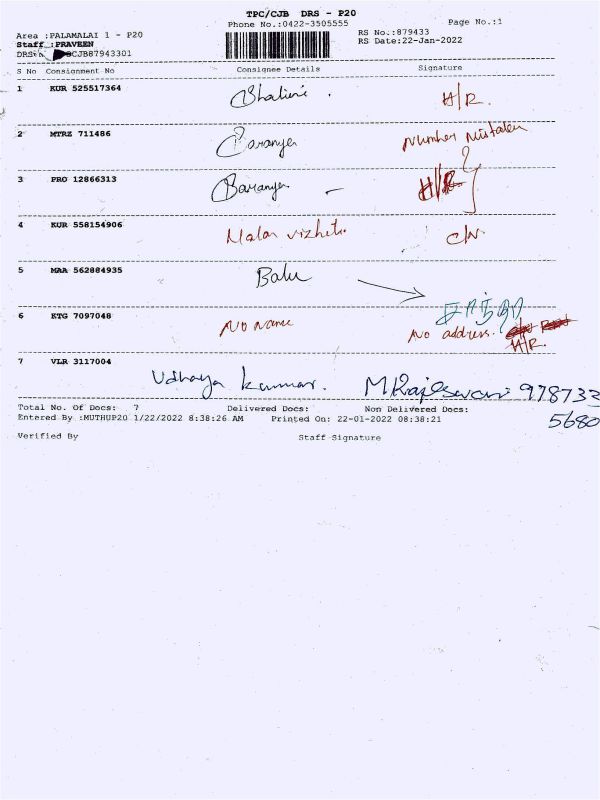 TPC/CJB DRS - P20
Phone No.:0422-3505555
Page No.:1
Area :PALAMALAI 1 - P20
RS No.:879433
Staff :PRAVEEN
RS Date:22-Jan-2022
CJB87943301
S No Consignment No Consignee Details Signature
1 KUR 525517364 Shalini . H/R.
2 MTRZ 711486 Saranya Number Mistake
3 PRO 12866313 Saranya - H/R
4 KUR 558154906 Malar vizhi
5 MAA 562884935 Balu
6 KTG 7097048 No name No address. H/R.
7 VLR 3117004 Udhaya kumar. M Rajeswari 978733
5680
Total No. Of Docs: 7 Delivered Docs: Non Delivered Docs:
Entered By :MUTHUP20 1/22/2022 8:38:26 AM Printed On: 22-01-2022 08:38:21
Verified By Staff Signature